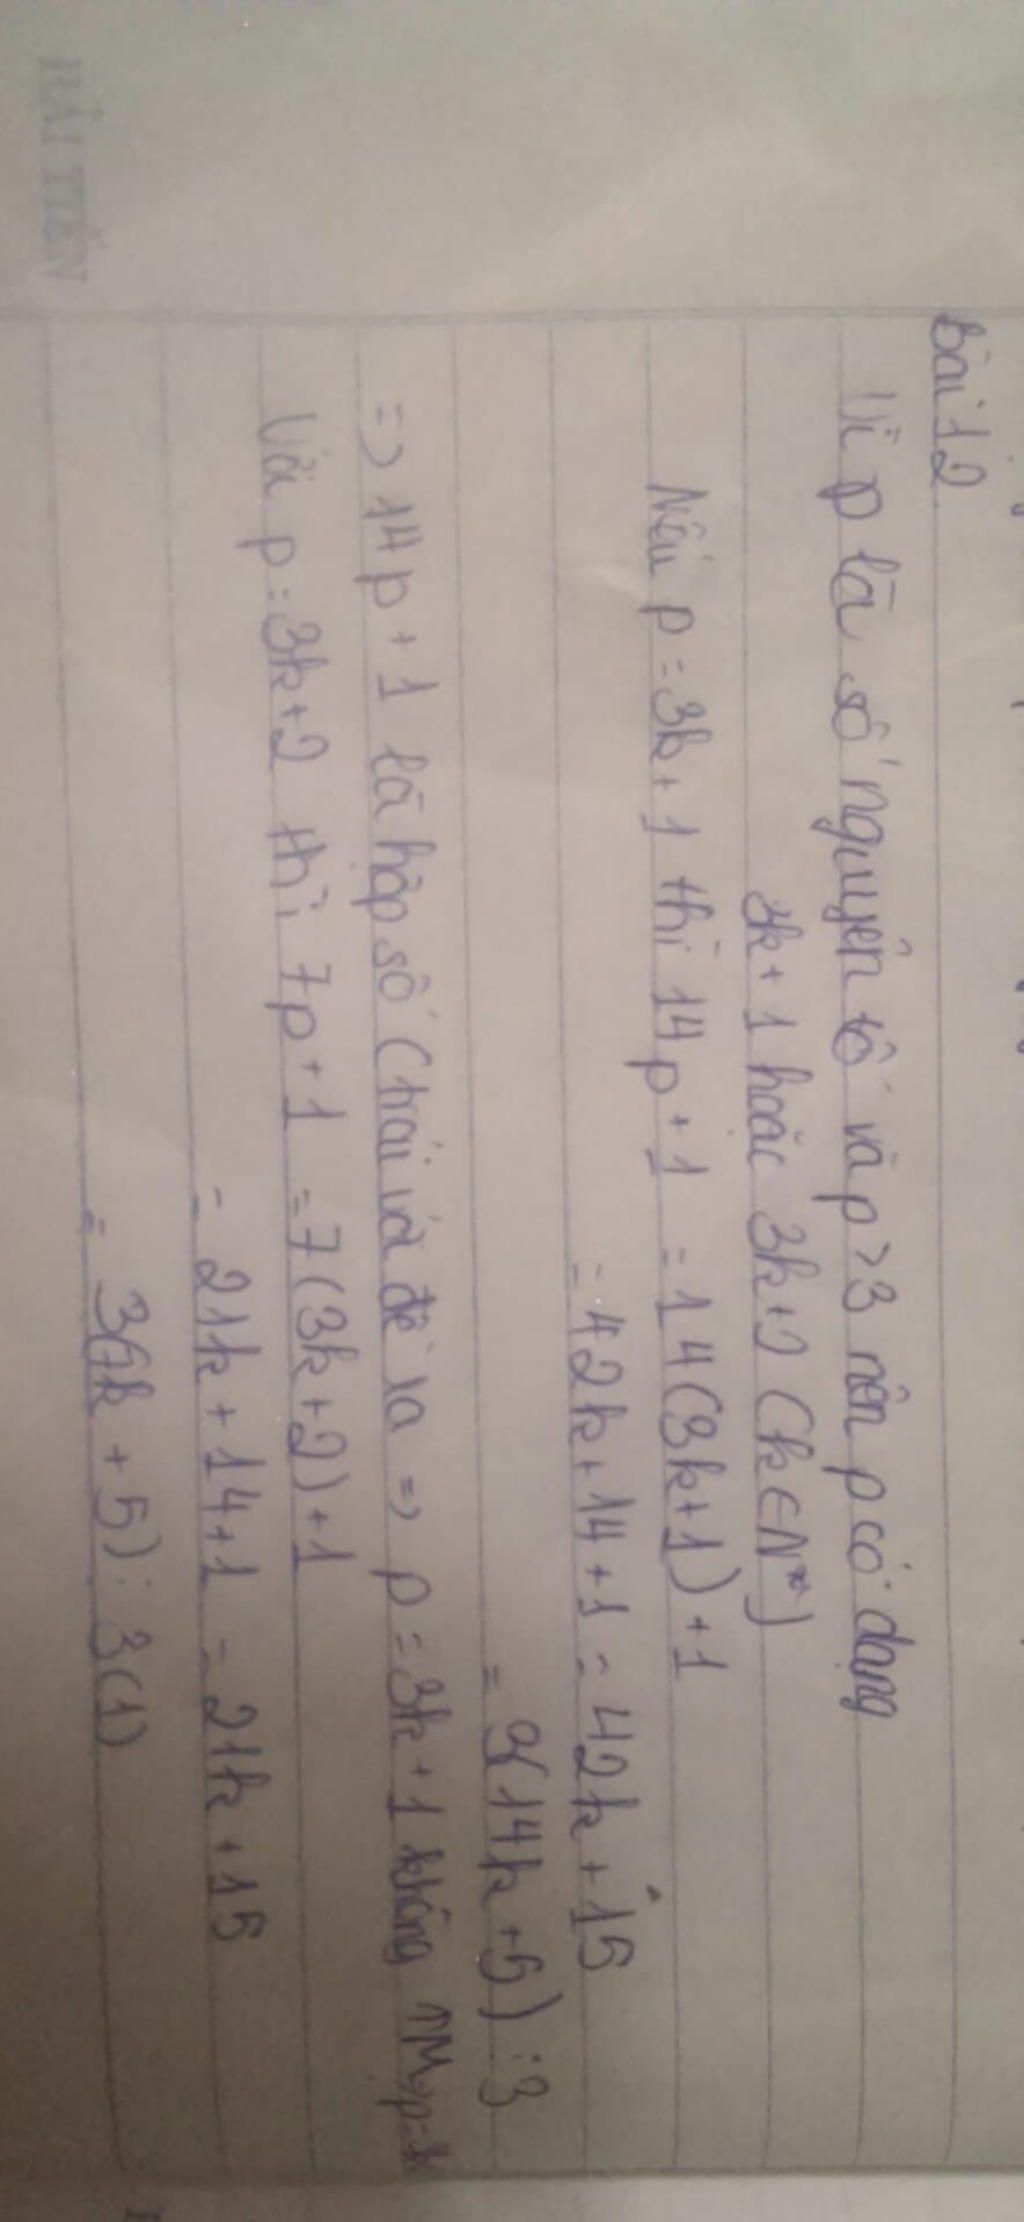 HẢI TIẾN
bài 12
Vì p là số nguyên tố và p > 3 nên p có dạng
3k+1 hoặc 3k+2 (k∈N*)
Nếu p = 3k+1 thì 14p+1 = 14(3k+1)+1
= 42k+14+1 = 42k+15
= 3(14k+5)⋮3
=> 14p+1 là hợp số (trái với đề ra => p = 3k+1 không TM
Với p = 3k+2 thì 7p+1 = 7(3k+2)+1
= 21k+14+1 = 21k+15
= 3(7k+5)⋮3(1)